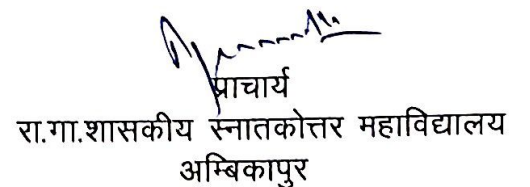 प्राचार्य
रा.गा.शासकीय स्नातकोत्तर महाविद्यालय
अम्बिकापुर